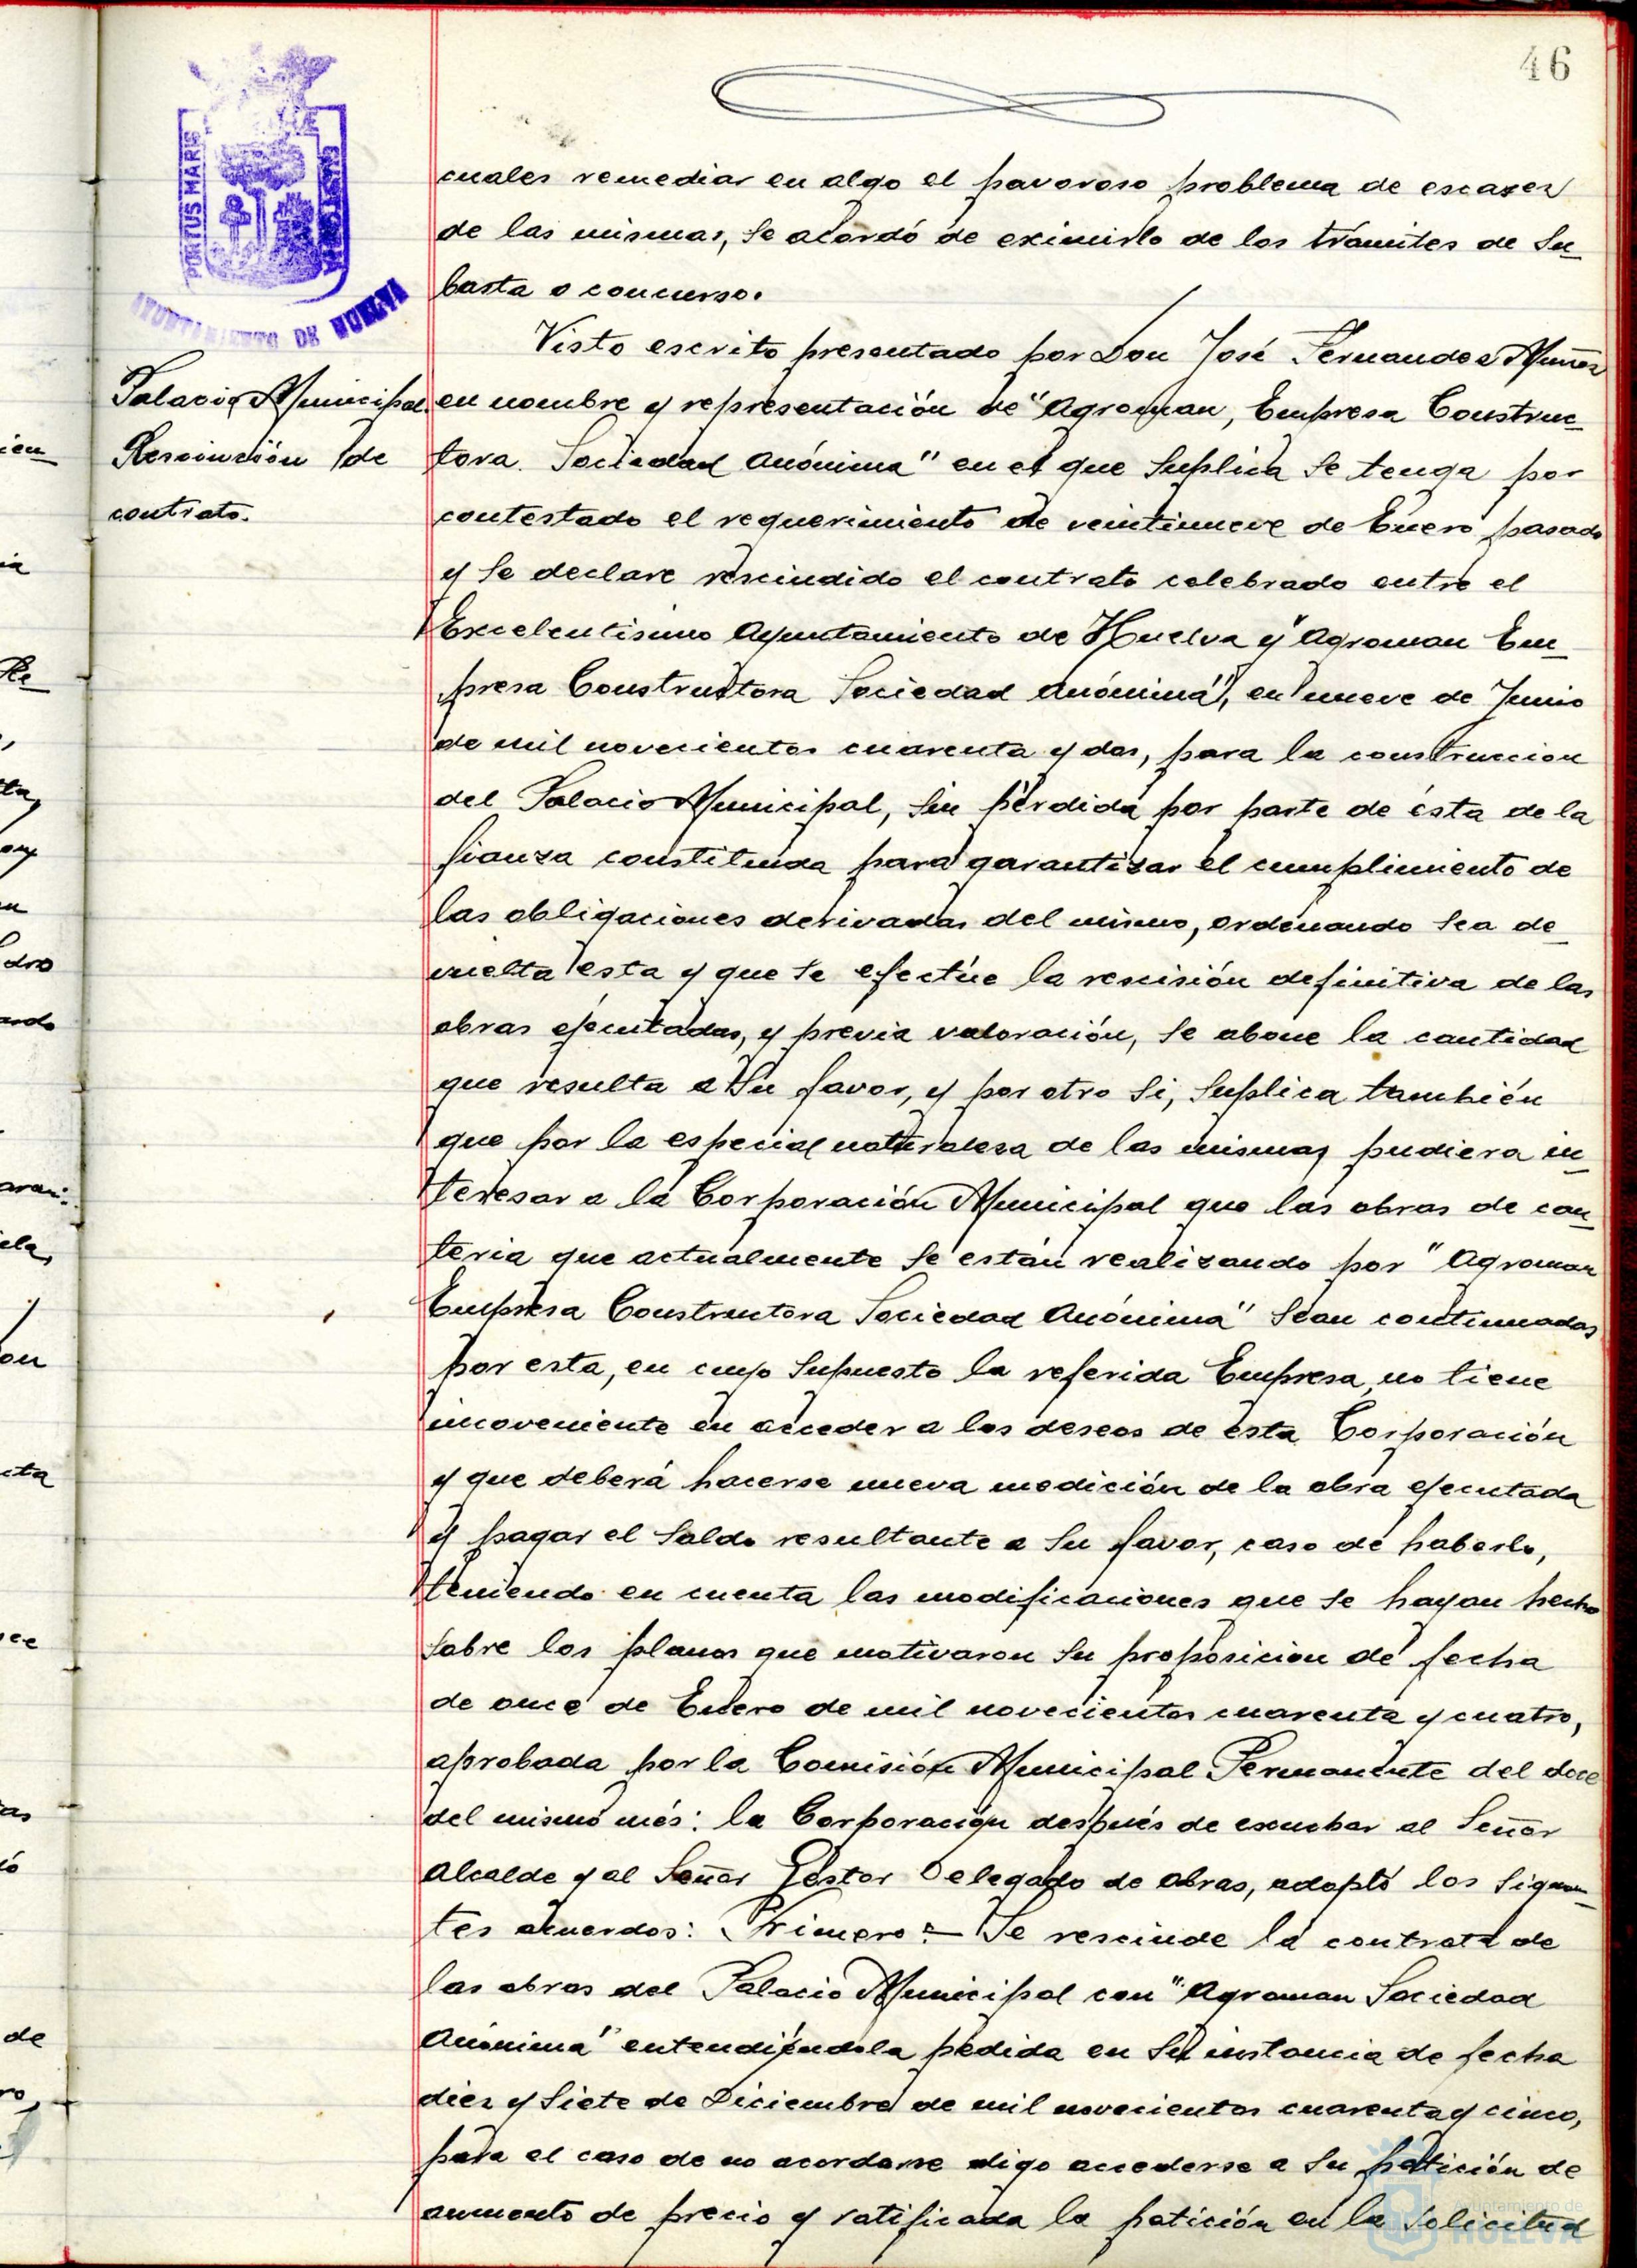 46
PORTUS MARIS
AYUNTAMIENTO DE HUELVA
cuales remediar en algo el pavoroso problema de escasez
de las mismas, se acordó de eximirlo de los trámites de su_
basta o concurso.
Visto escrito presentado por Don José Fernandez Muñoz
Palacio Municipal
en nombre y representación de "Agroman, Empresa Construc_
Rescinsión de
tora. Sociedad Anónima" en el que suplica se tenga por
contrato.
contestado el requerimiento de veintinueve de Enero pasado
y se declare rescindido el contrato celebrado entre el
Excelentisimo Ayuntamiento de Huelva y "Agroman Em_
presa Constructora Sociedad Anónima", en nueve de Junio
de mil novecientos cuarenta y dos, para la construccion
del Palacio Municipal, sin pérdida por parte de ésta de la
fianza constituida para garantizar el cumplimiento de
las obligaciones derivadas del mismo, ordenando sea de_
vuelta esta y que se efectúe la rescisión definitiva de las
obras ejecutadas, y previa valoración, se abone la cantidad
que resulta a su favor, y por otro si, suplica también
que por la especial naturaleza de las mismas pudiera in_
teresar a la Corporación Municipal que las obras de can_
teria que actualmente se están realizando por "Agroman
Empresa Constructora Sociedad Anónima" sean continuadas
por esta, en cuyo supuesto la referida Empresa, no tiene
incoveniente en acceder a los deseos de ésta Corporación
y que deberá hacerse nueva medición de la obra ejecutada
y pagar el saldo resultante a su favor, caso de haberlo,
teniendo en cuenta las modificaciones que se hayan hecho
sobre los planos que motivaron su proposicion de fecha
de once de Enero de mil novecientos cuarenta y cuatro,
aprobada por la Comisión Municipal Permanente del doce
del mismo més: la Corporación después de escuchar al Señor
Alcalde y al Señor Gestor Delegado de obras, adoptó los siguien_
tes acuerdos: Primero = Se rescinde la contrata de
las obras del Palacio Municipal con "Agroman Sociedad
Anónima" entendiéndola pedida en su instancia de fecha
diez y siete de Diciembre de mil novecientos cuarenta y cinco,
para el caso de no acordarse digo accederse a su petición de
aumento de precio y ratificada la petición en la solicitud
Ayuntamiento de
HUELVA